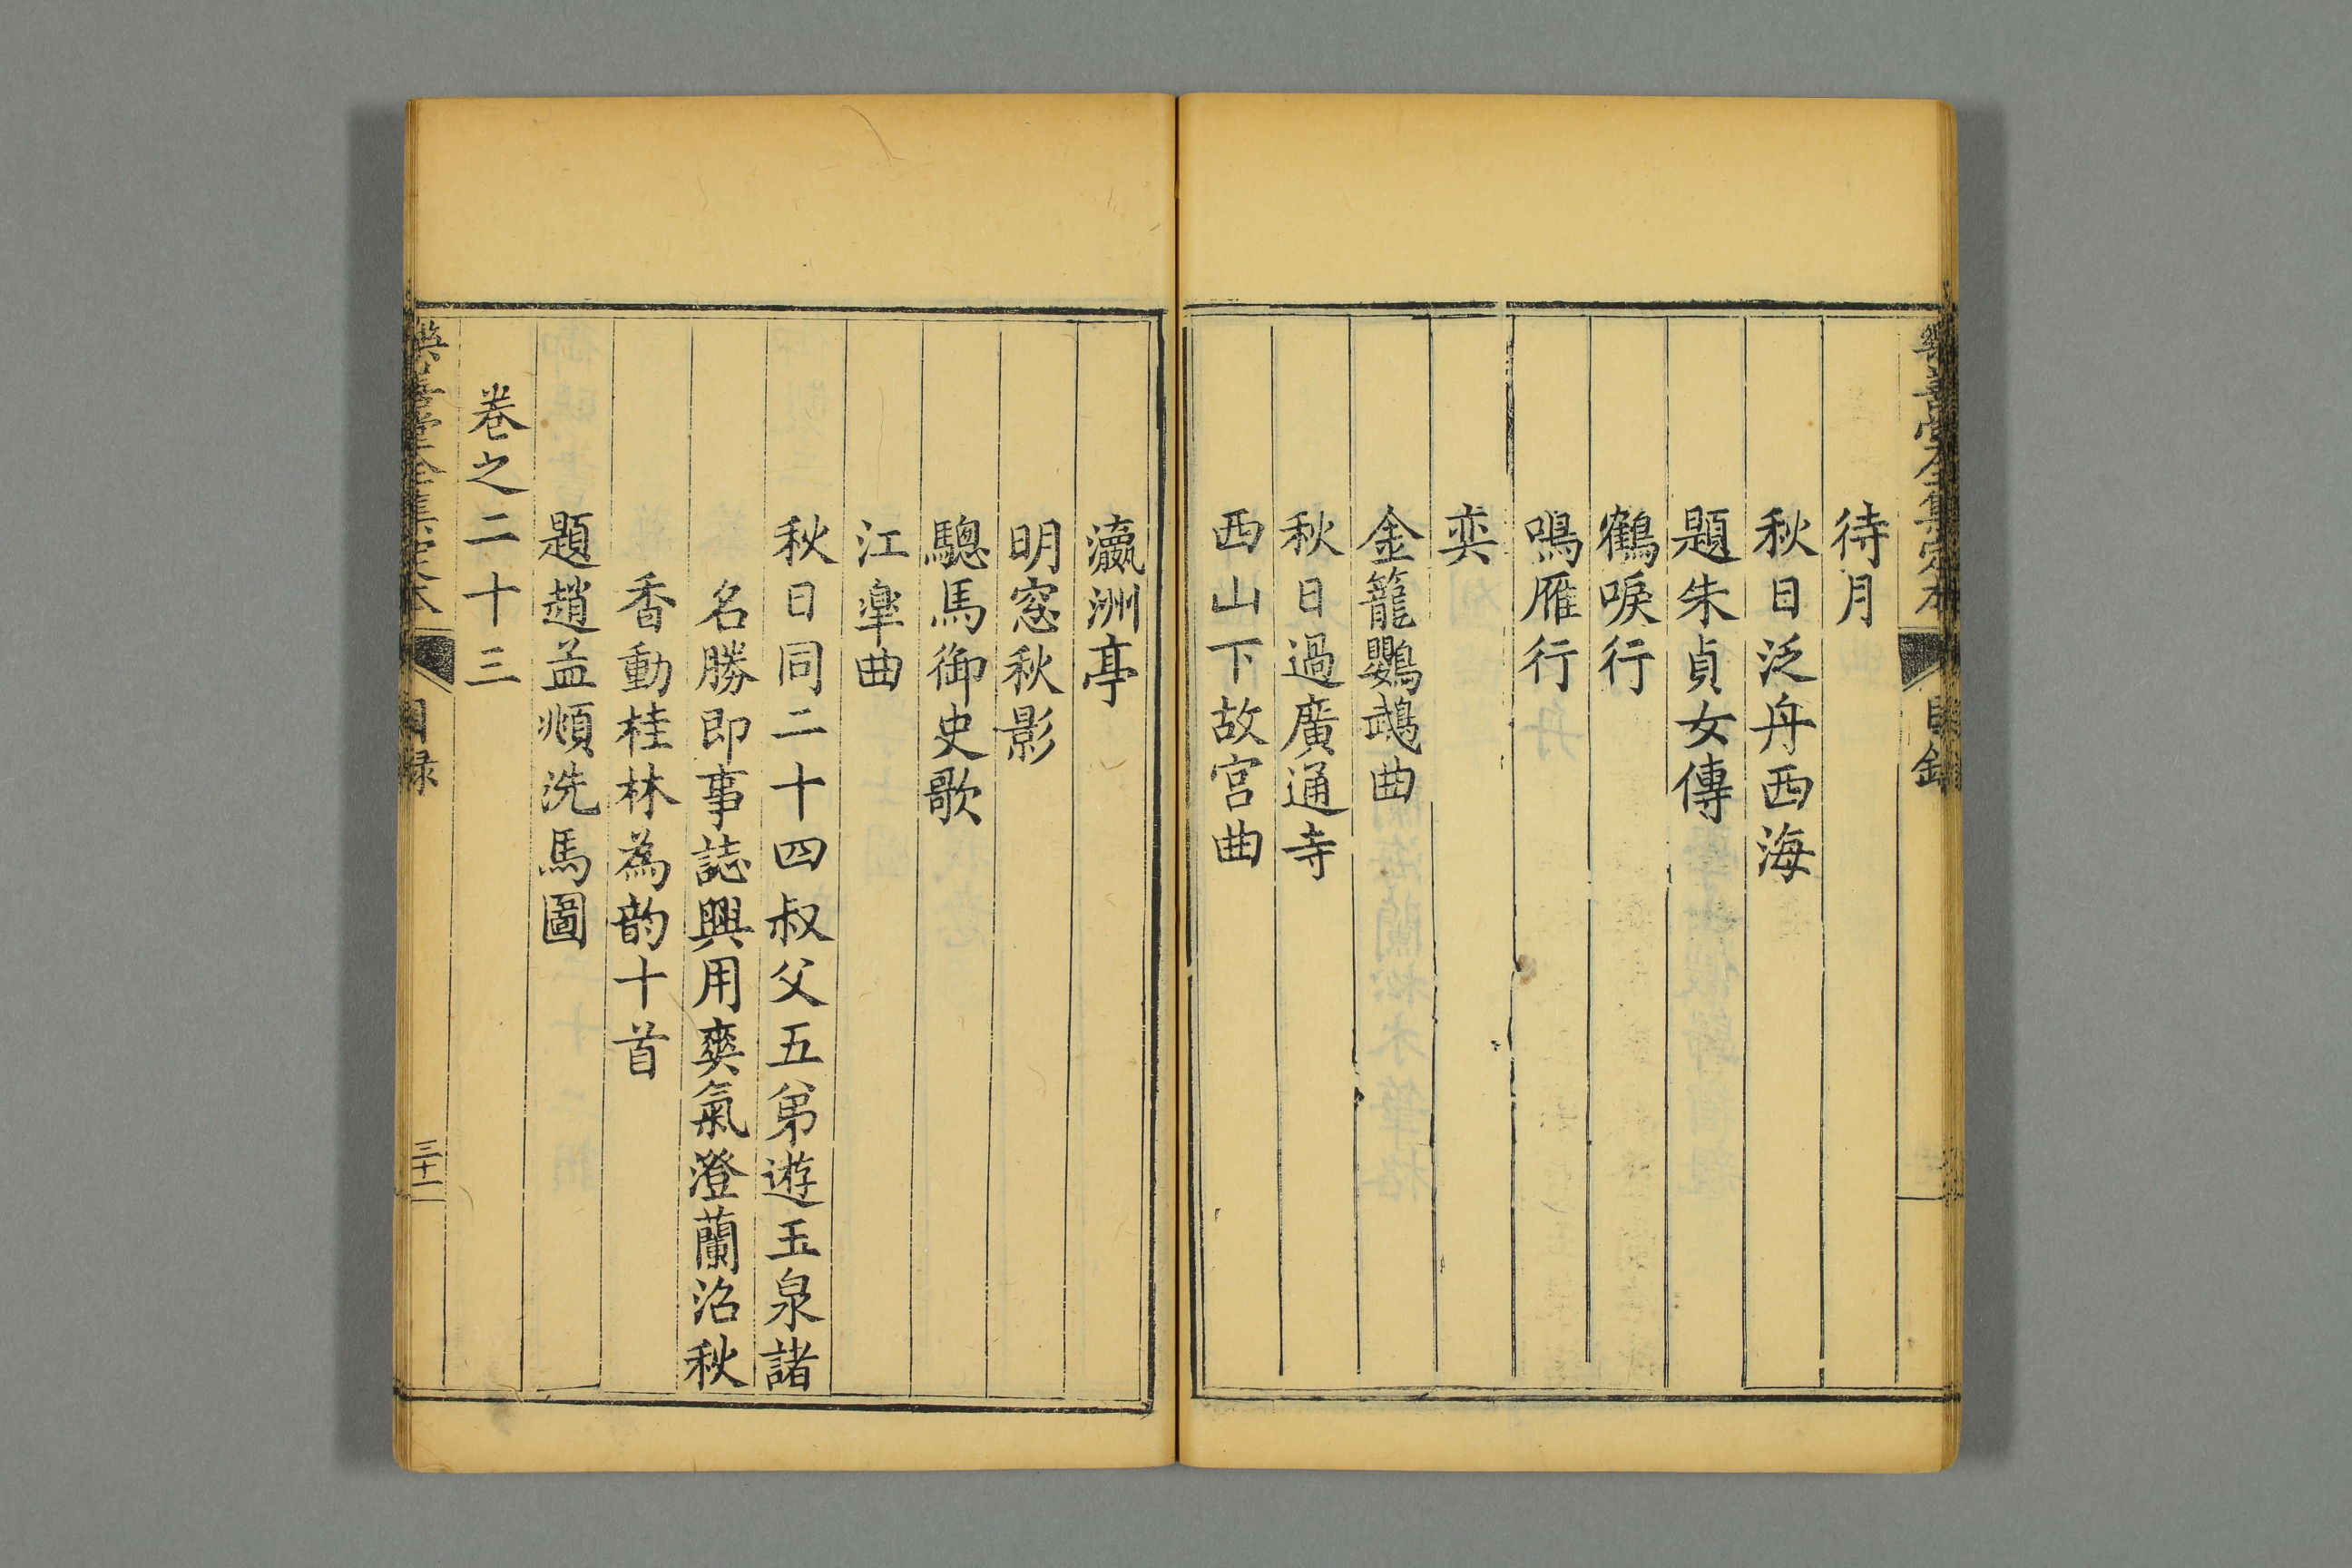 樂善堂全集定本
目錄
待月
秋日泛舟西海
題朱貞女傳
鶴唳行
鳴雁行
奕
金籠鸚鵡曲
秋日過廣通寺
西山下故宮曲
瀛洲亭
明窓秋影
驄馬御史歌
江臯曲
秋日同二十四叔父五弟遊玉泉諸
名勝即事誌興用爽氣澄蘭沼秋
香動桂林為韵十首
題趙孟頫洗馬圖
卷之二十三
樂善堂全集定本
目錄
三十一